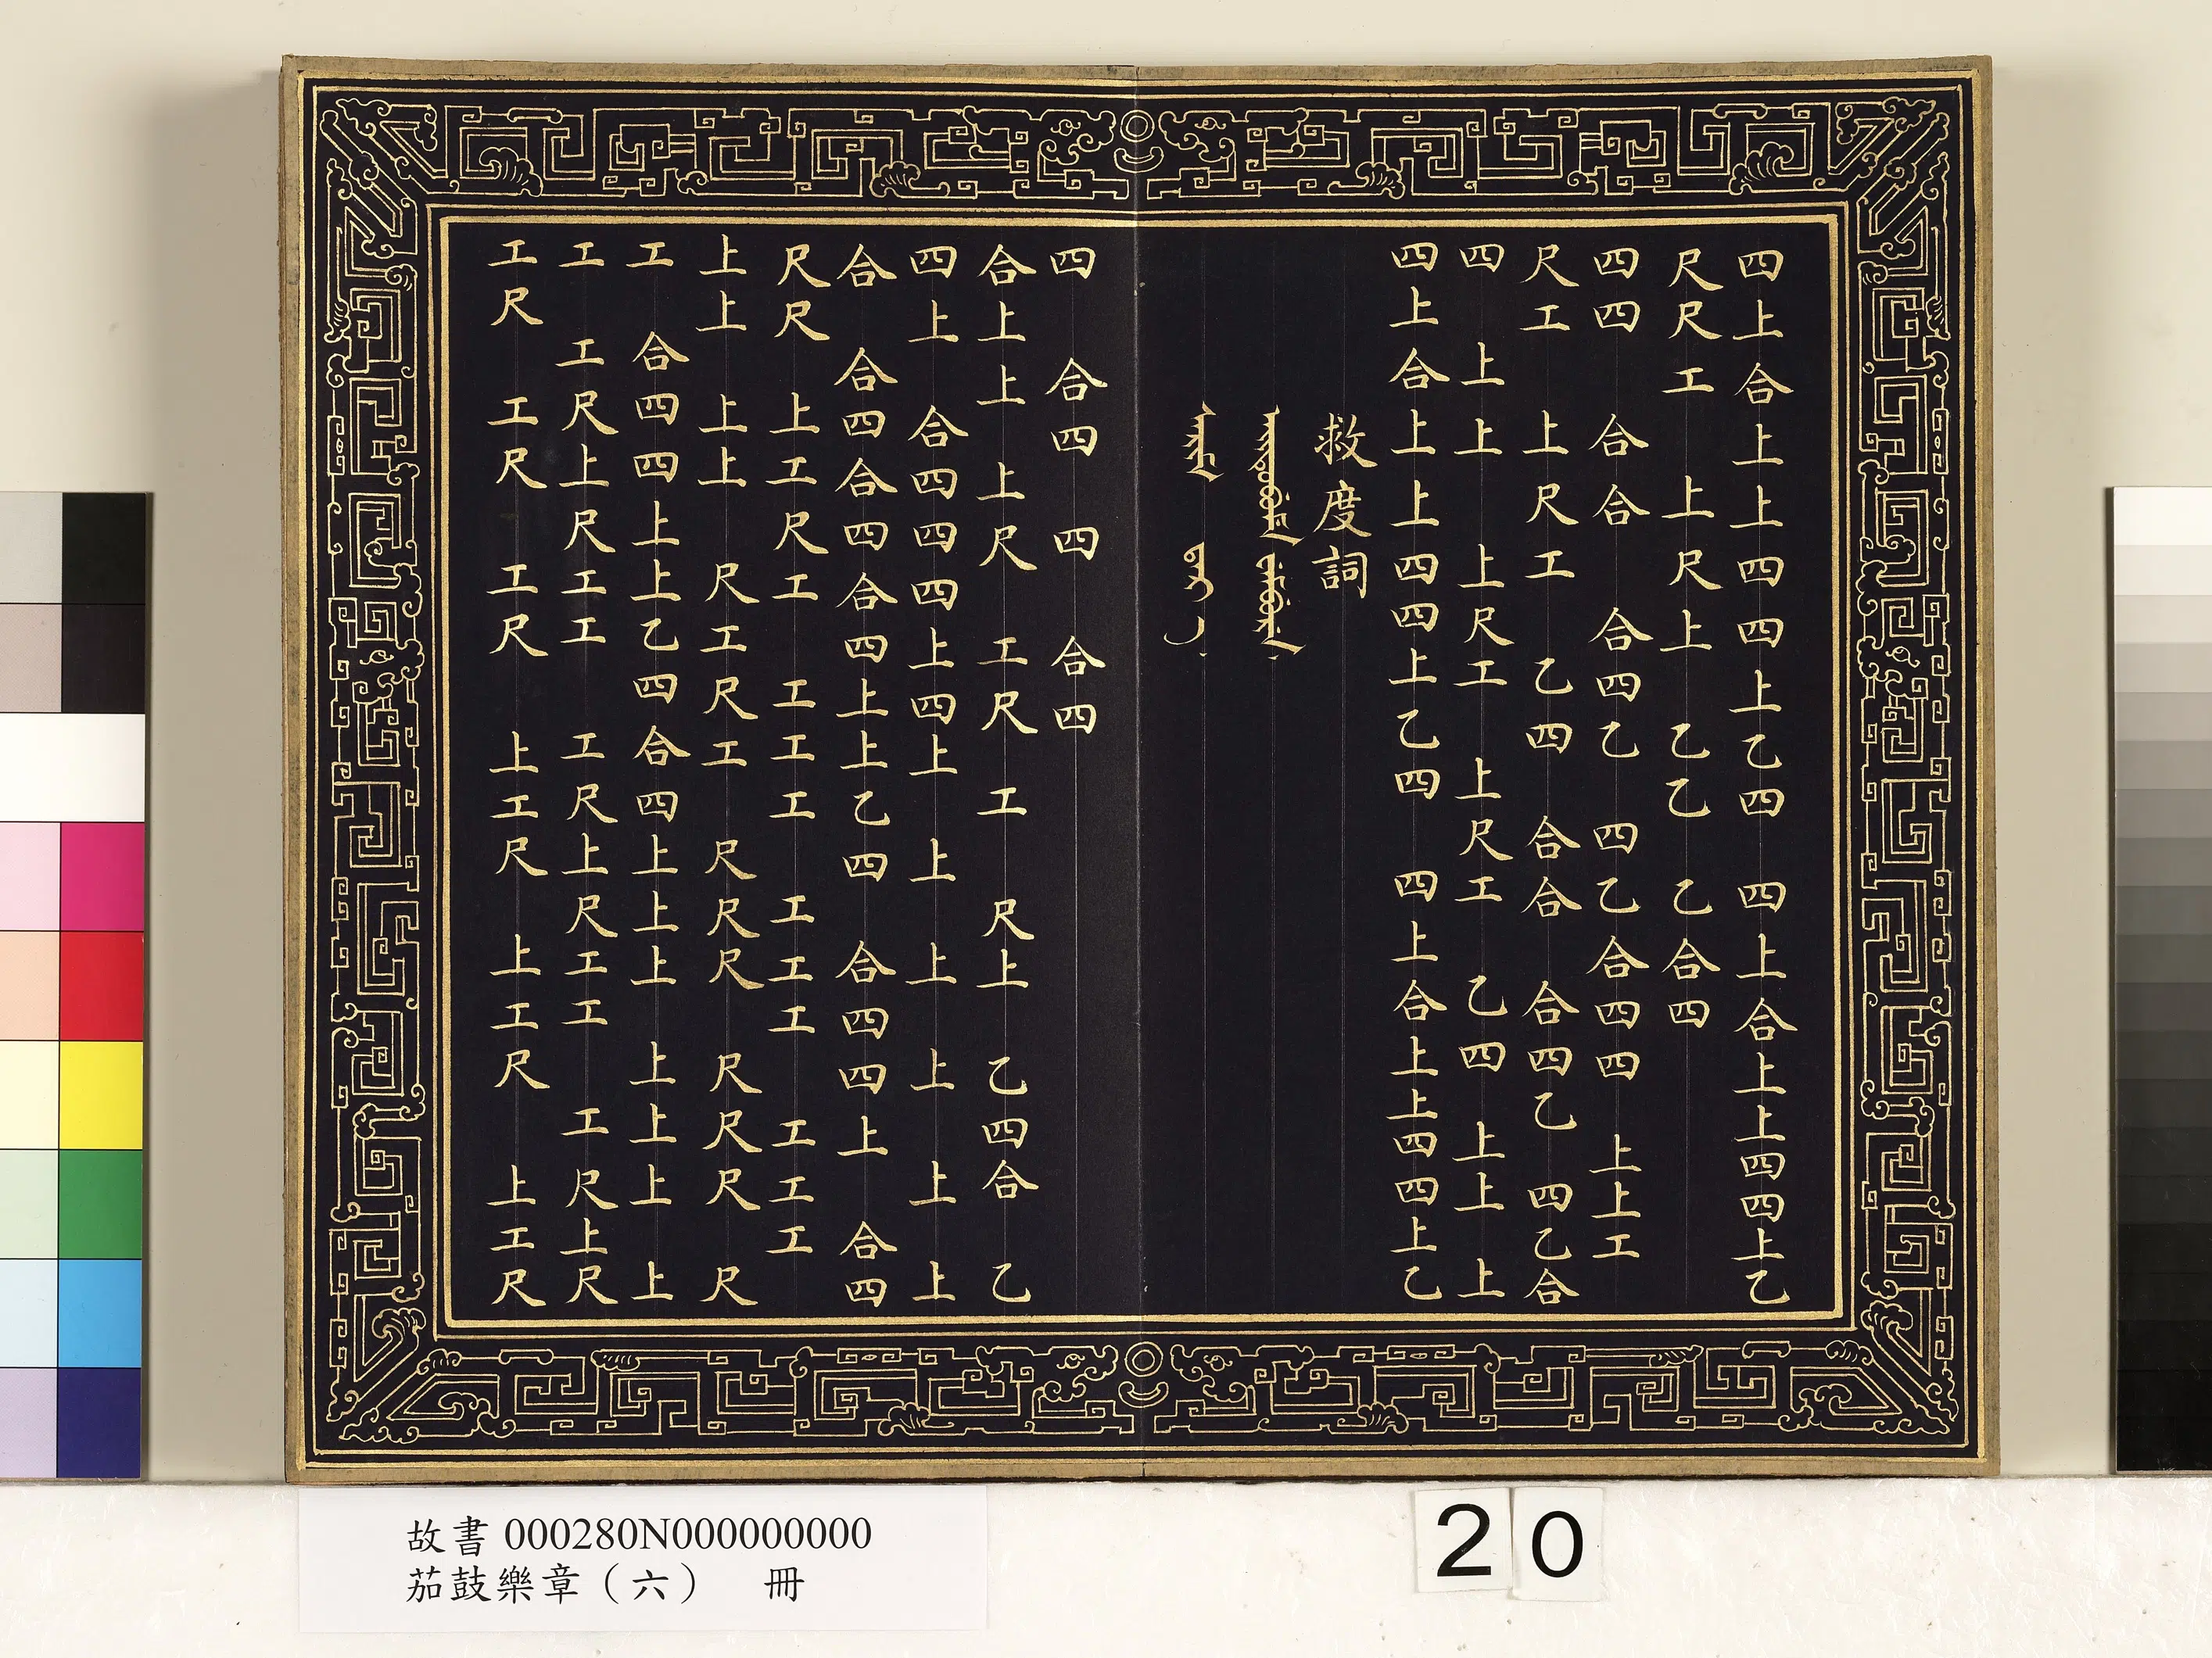 四上合上上四四上乙四 四上合上上四四上乙
尺尺工 上尺上 乙乙 乙合四
四四 合合 合四乙 四乙合四四 上上工
尺工 上尺工 乙四 合合 合四乙 四乙合
四 上上 上尺工 上尺工 乙四 上上 上
四上合上上四四上乙四 四上合上上四四上乙
救度詞
四 合四 四 合四
合上上 上尺 工尺 工 尺上 乙四合 乙
四上 合四四四上四上 上 上 上 上 上
合 合四合四合四上上乙四 合四四上 合四
尺尺 上工尺工 工工工 工工工 工工工
上上 上上 尺工尺工 尺尺尺 尺尺尺 尺
工 合四四上上乙四合四上上上 上上上 上
工 工尺上尺工工 工尺上尺工工 工尺上尺
工尺 工尺 工尺 上工尺 上工尺 上工尺
故書 000280N000000000
茄鼓樂章（六） 冊
20